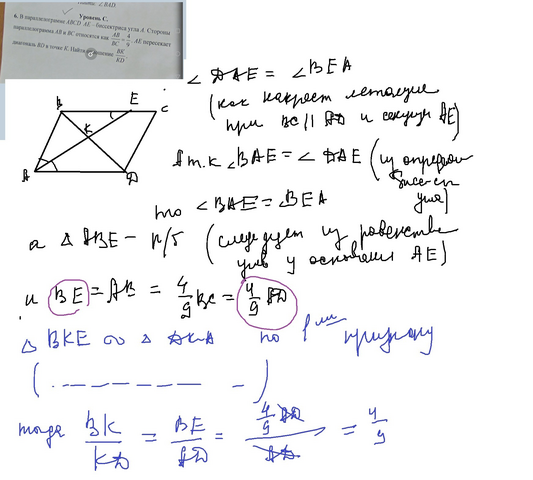 Уровень С.
6. В параллелограмме ABCD AE - биссектриса угла А. Стороны
параллелограмма AB и BC относятся как AB/BC = 4/9. AE пересекает
диагональ BD в точке K. Найти отношение BK/KD.
B E C
K
A D
∠ DAE = ∠BEA
(как накрест лежащие
при BC || AD и секущей AE)
А т.к ∠BAE = ∠ DAE (из определ
биссек
угла)
то ∠BAE = ∠BEA
а △ ABE – р/б (следует из равенства
углов у основания AE)
и BE = AB = 4/9 BC = 4/9 AD
△ BKE ∞ △ DKA по 1ому признаку
(. — — — — — —)
тогда BK/KD = BE/AD = 4/9 AD / AD = 4/9